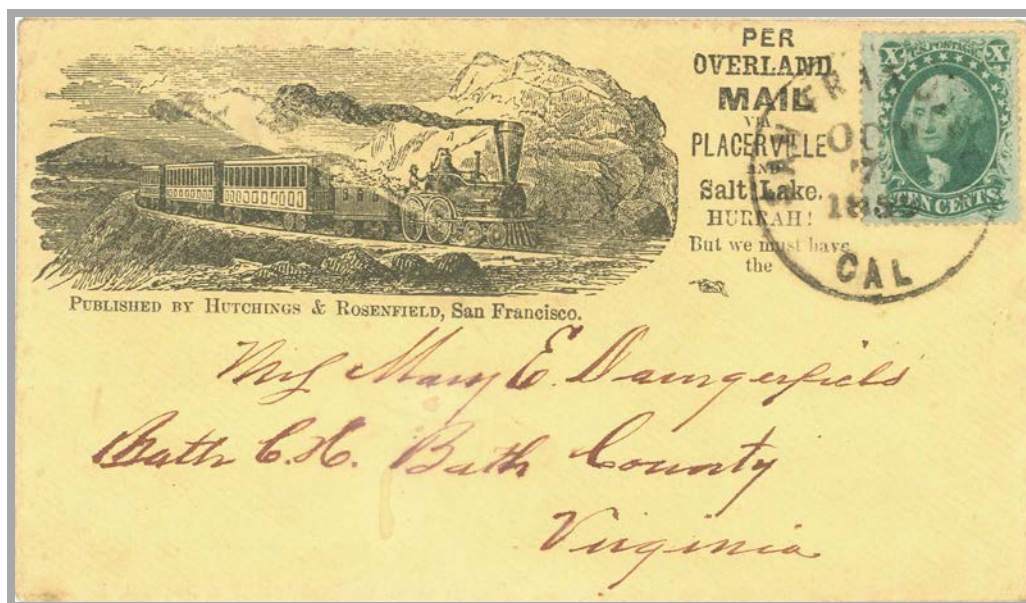 PER
OVERLAND
MAIL
VIA
PLACERVILLE
AND
Salt Lake.
HURRAH!
But we must have
the
X U.S. POSTAGE X
TEN CENTS
OCT
7
185
CAL
PUBLISHED BY HUTCHINGS & ROSENFIELD, San Francisco.
Miss Mary E. Daingerfield
Bath C.H. Bath County
Virginia